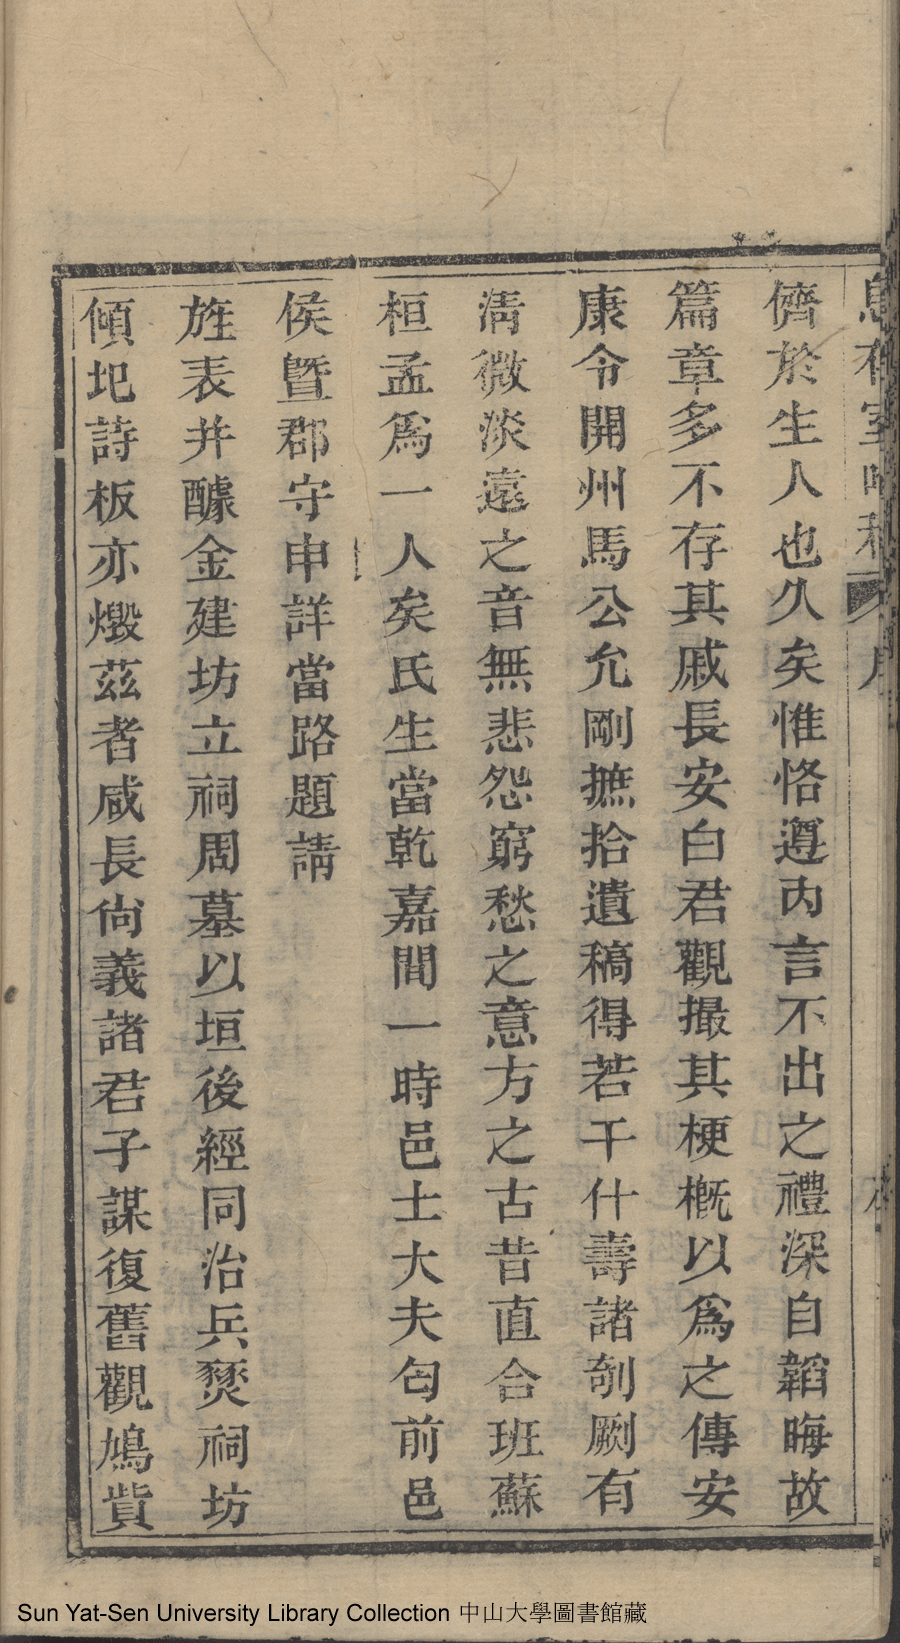 儕於生人也久矣惟恪遵内言不出之禮深自韜晦故
篇章多不存其戚長安白君觀撮其梗槪以爲之傳安
康令開州馬公允剛摭拾遺稿得若干什壽諸剞劂有
淸微淡遠之音無悲怨窮愁之意方之古昔直合班蘇
桓孟爲一人矣氏生當乾嘉間一時邑士大夫匄前邑
侯曁郡守申詳當路題請
旌表并醵金建坊立祠周墓以垣後經同治兵燹祠坊
傾圯詩板亦燬茲者咸長尙義諸君子謀復舊觀鳩貲
Sun Yat-Sen University Library Collection 中山大學圖書館藏